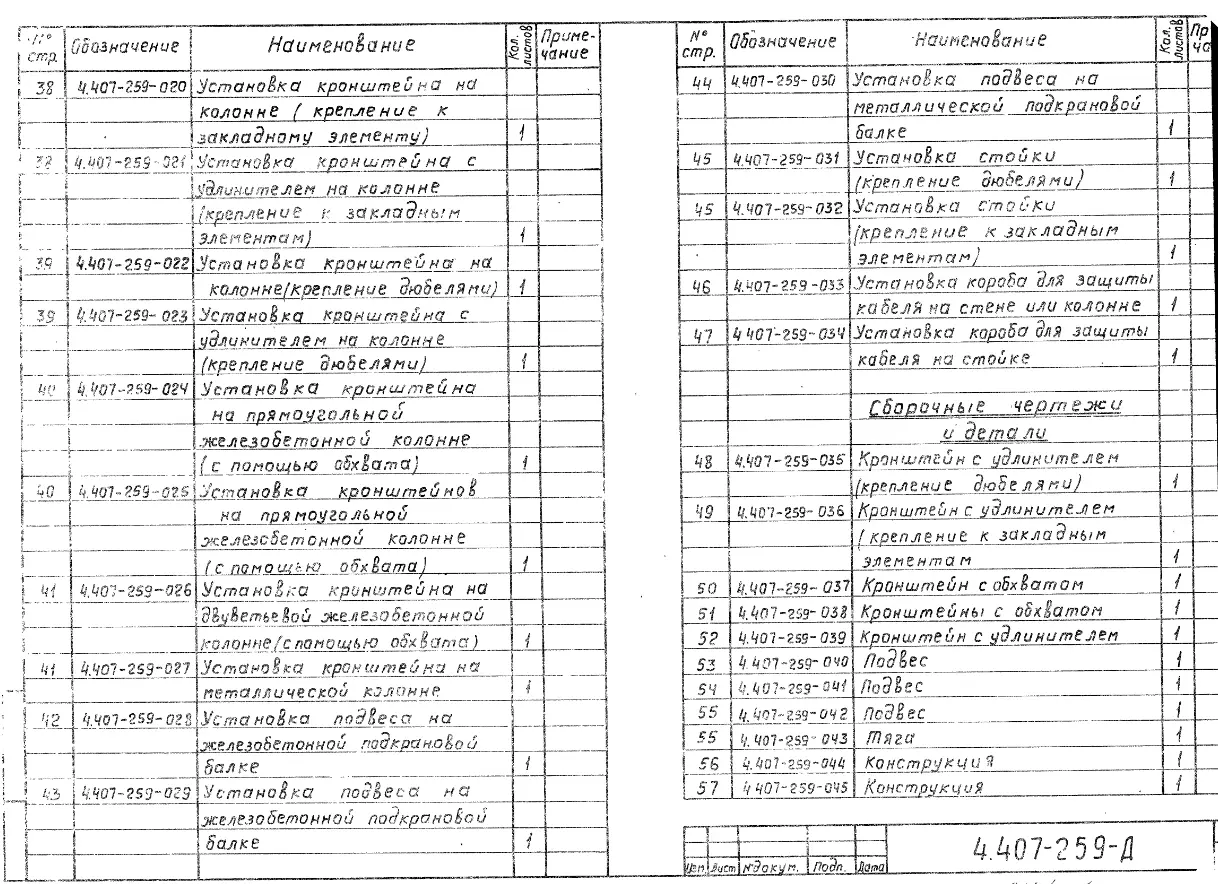 № стр. Обозначение Наименование Кол. листов Примечание
38 4.407-259-020 Установка кронштейна на
колонне ( крепление к
закладному элементу) 1
38 4.407-259-021 Установка кронштейна с
удлинителем на колонне
(крепление к закладным
элементам) 1
39 4.407-259-022 Установка кронштейна на
колонне (крепление дюбелями) 1
39 4.407-259-023 Установка кронштейна с
удлинителем на колонне
(крепление дюбелями) 1
40 4.407-259-024 Установка кронштейна
на прямоугольной
железобетонной колонне
( с помощью обхвата) 1
40 4.407-259-025 Установка кронштейнов
на прямоугольной
железобетонной колонне
( с помощью обхвата) 1
41 4.407-259-026 Установка кронштейна на
двуветьевой железобетонной
колонне (с помощью обхвата) 1
41 4.407-259-027 Установка кронштейна на
металлической колонне 1
42 4.407-259-028 Установка подвеса на
железобетонной подкрановой
балке 1
43 4.407-259-029 Установка подвеса на
железобетонной подкрановой
балке 1
№ стр. Обозначение Наименование Кол. листов Пр ча
44 4.407-259-030 Установка подвеса на
металлической подкрановой
балке 1
45 4.407-259-031 Установка стойки
(крепление дюбелями) 1
45 4.407-259-032 Установка стойки
(крепление к закладным
элементам) 1
46 4.407-259-033 Установка короба для защиты
кабеля на стене или колонне 1
47 4.407-259-034 Установка короба для защиты
кабеля на стойке 1
Сборочные чертежи
и детали
48 4.407-259-035 Кронштейн с удлинителем
(крепление дюбелями) 1
49 4.407-259-036 Кронштейн с удлинителем
( крепление к закладным
элементам 1
50 4.407-259-037 Кронштейн с обхватом 1
51 4.407-259-038 Кронштейны с обхватом 1
52 4.407-259-039 Кронштейн с удлинителем 1
53 4.407-259-040 Подвес 1
54 4.407-259-041 Подвес 1
55 4.407-259-042 Подвес 1
55 4.407-259-043 Тяга 1
56 4.407-259-044 Конструкция 1
57 4.407-259-045 Конструкция 1
4.407-259-Д
Изм. Лист № докум. Подп. Дата